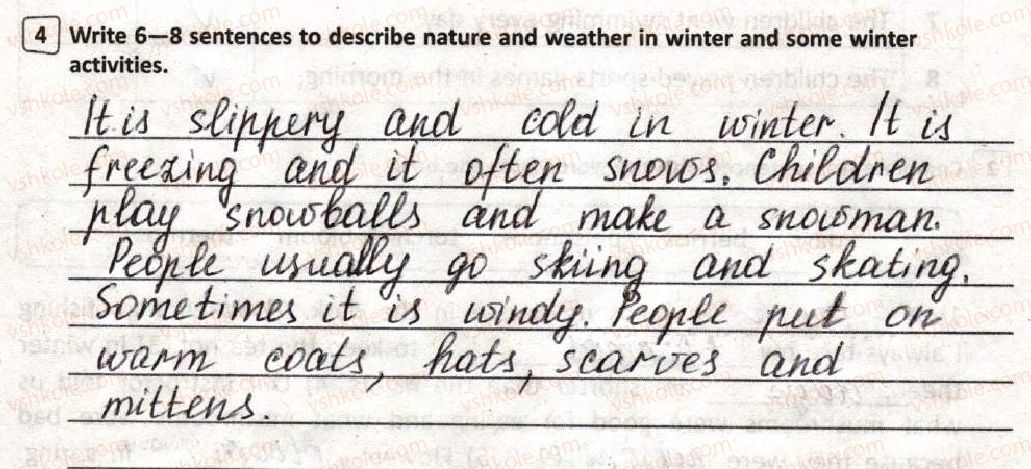 4 Write 6—8 sentences to describe nature and weather in winter and some winter
activities.
It is slippery and cold in winter. It is
freezing and it often snows. Children
play snowballs and make a snowman.
People usually go skiing and skating.
Sometimes it is windy. People put on
warm coats, hats, scarves and
mittens.